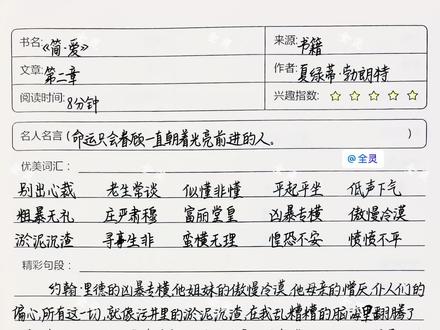 书名:《简·爱》 来源: 书籍
文章: 第二章 作者: 夏绿蒂·勃朗特
阅读时间: 8分钟 兴趣指数: ☆ ☆ ☆ ☆ ☆
名人名言 (命运只会眷顾一直朝着光亮前进的人。 )
@全灵
优美词汇:
别出心裁 老生常谈 似懂非懂 平起平坐 低声下气
粗暴无礼 庄严肃穆 富丽堂皇 凶暴专横 傲慢冷漠
淤泥沉渣 寻事生非 蛮横无理 惶恐不安 愤愤不平
精彩句段:
约翰·里德的凶暴专横,他姐妹的傲慢冷漠,他母亲的憎厌,仆人们的
偏心,所有这一切,就像污井里的淤泥沉渣,在我乱糟糟的脑海里翻腾了